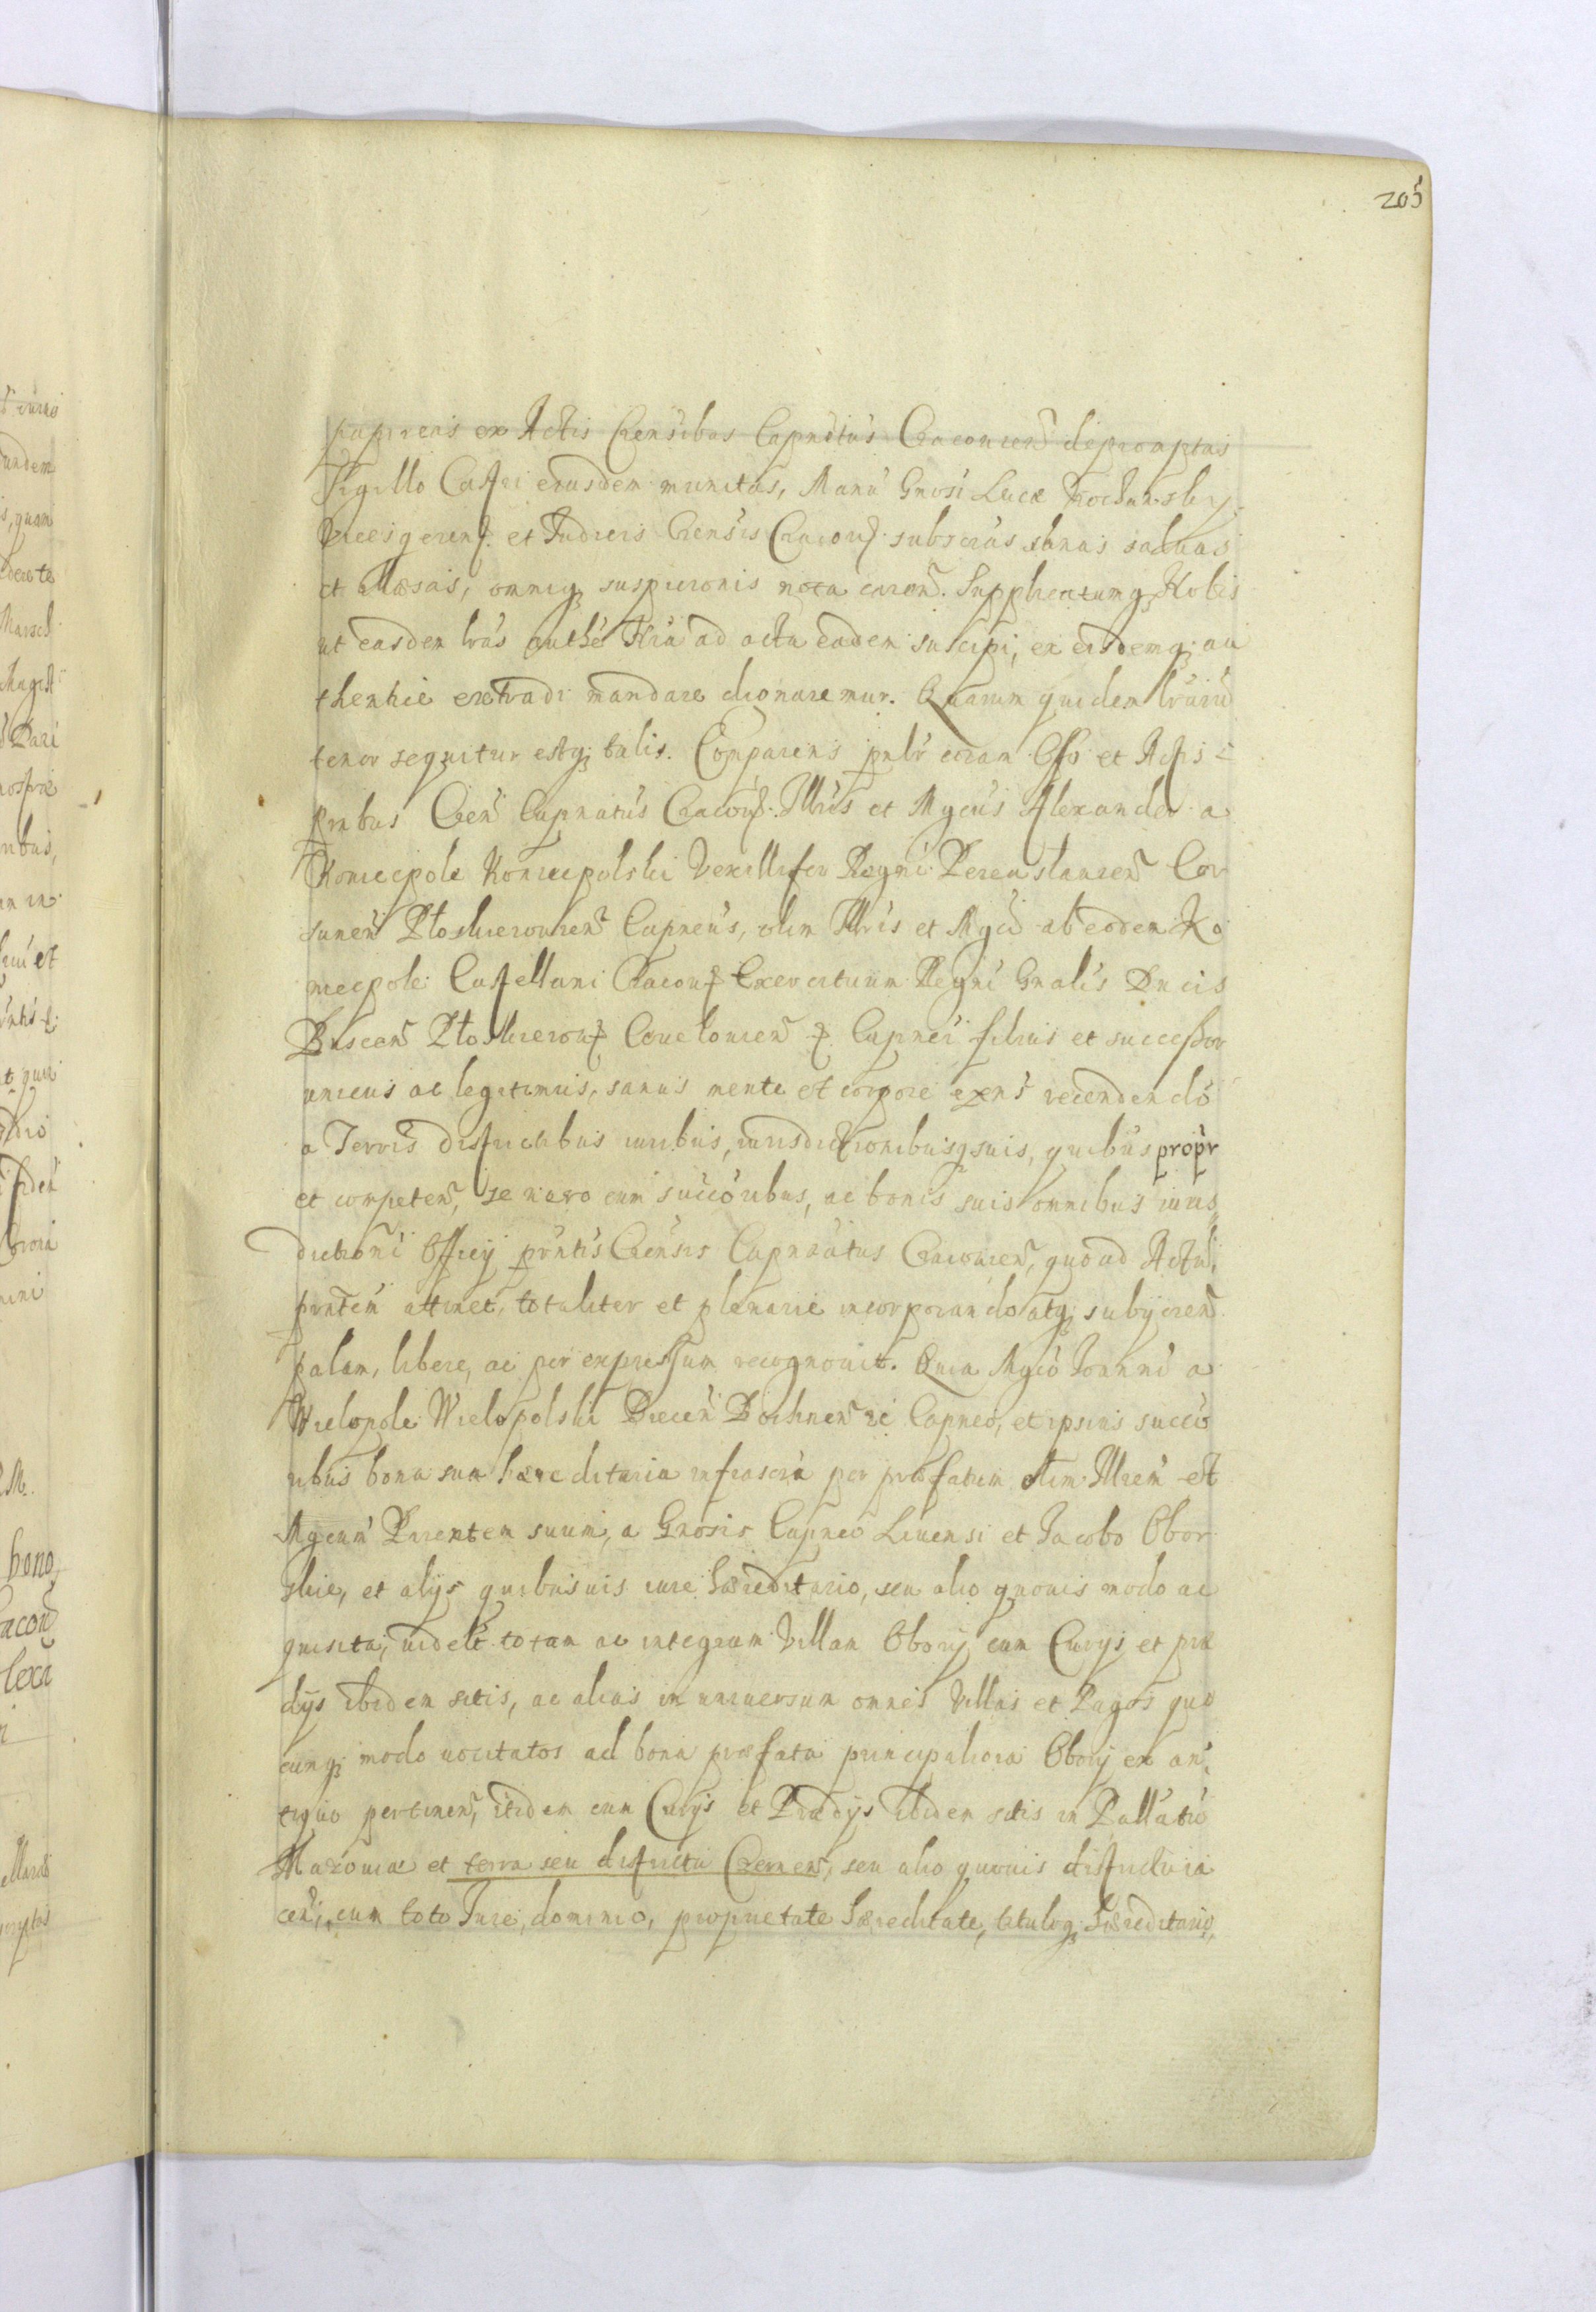 205
papireas ex Actis Crensibus Capnētus Cracouien̄ depromptas
Sigillo Castri eiusdem munitas, Manu Gnosi Lucæ
Vicesgeren. et Iudicis Crensis Cracou. subscras sanas saluas
et illæsas, omniq; suspicionis nota caren̄. Supplicatumq; Nobis
ut easdem lras authē ad acta eadem suscipi, ex eisdemq; au
thentice extradi mandare dignaremur. Quarum quidem lrarū
tenor sequitur estq; talis. Comparens pnlr coram Offo et Actis
pntbus Cren̄ Capnatus Cracou. Illris et Mgcus Alexander a
Koniecpole Koniecpolski Vexillifer Regni Pereaslauien̄ Cor
sunen̄ Płoskierouien̄ Capneus, olim Illris et Mgci ab eodem Ko
niecpole Castellani Cracou Exercituum Regni Gnalis Ducis
Buscen̄ Płoskierou Capnei filius et successor
unicus ac legitimus, sanus mente et corpore exens recedendo
a Terris districtibus iuribus, iurisdictionibusq suis, quibus propr
et competen̄, se uero cum succoribus, ac bonis suis omnibus iuris
dictioni Officij pntis Crensis Capneatus Cracouien̄, quo ad Actū
pntem attinet, totaliter et plenarie incorporando atq; subijcien̄
palam, libere, ac per expressum recognouit. Quia Mgco Ioanni a
Wielopole Wielopolski Biecen̄ Bochnen̄ Capneo, et ipsius succo
ribus bona sua hæreditaria infrascra per præfatum olim Illrem et
Mgcum Parentem suum, a Gnosis Capneo Liuensi et Iacobo Obor
skie, et alijs quibusuis iure hæreditario, seu alio quouis modo ac
quisita, uidelt totam ac integram Villam Obory cum Curijs et præ
dijs ibidem sitis, ac alias in uniuersum omnes Villas et Pagos quo
cunq; modo uocitatos ad bona præfata principaliora Obory ex an
tiquo pertinen̄, itidem cum Curijs et Prædijs ibidem sitis in Pallatū
Mazouiæ et terra seu districtu Czernen̄, seu alio quouis districtu ia
cen̄, cum toto Iure, dominio, proprietate hæreditate, tituloq; hæreditario,